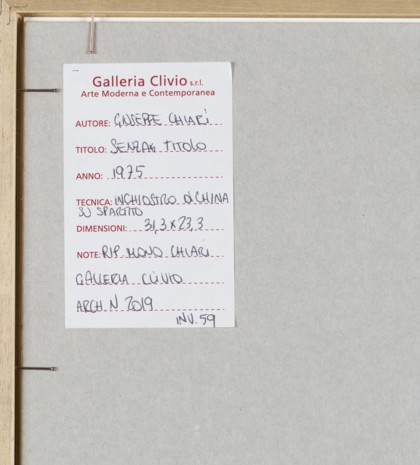 Galleria Clivio s.r.l.
Arte Moderna e Contemporanea
AUTORE: GIUSEPPE CHIARI
TITOLO: SENZA TITOLO
ANNO: 1975
TECNICA: INCHIOSTRO DI CHINA
SU SPARTITO
DIMENSIONI: 31,3 x 23,3
NOTE: RIP. MONO CHIARI
GALLERIA CLIVIO
ARCH. N 2019
INV. 59